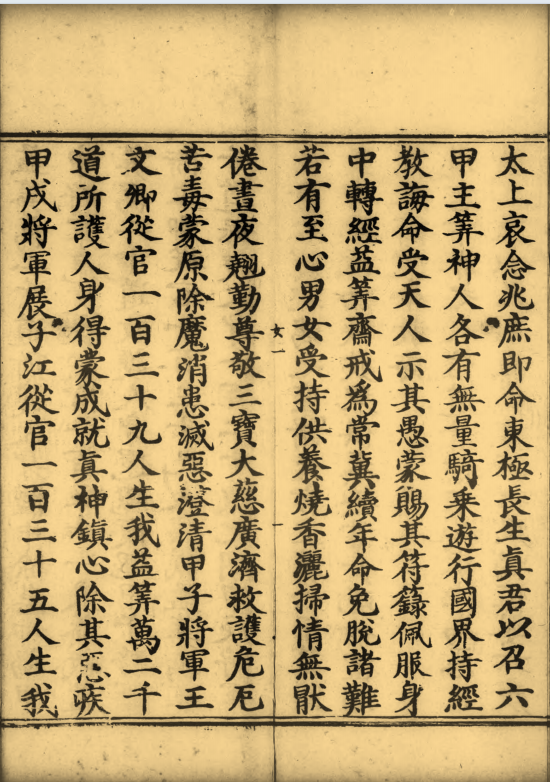 太上哀念兆庶即命東極長生眞君以召六
甲主筭神人各有無量騎乗遊行國界持經
教誨命受天人示其愚蒙賜其符籙佩服身
中轉經益筭齋戒爲常冀續年命免脫諸難
若有至心男女受持供養燒香灑掃情無猒
女一
倦晝夜翹勤尊敬三寶大慈廣濟救護危厄
苦毒蒙原除魔消患滅惡澄清甲子將軍王
文卿從官一百三十九人生我益筭萬二千
道所護人身得蒙成就眞神鎮心除其惡疾
甲戌將軍展子江從官一百三十五人生我